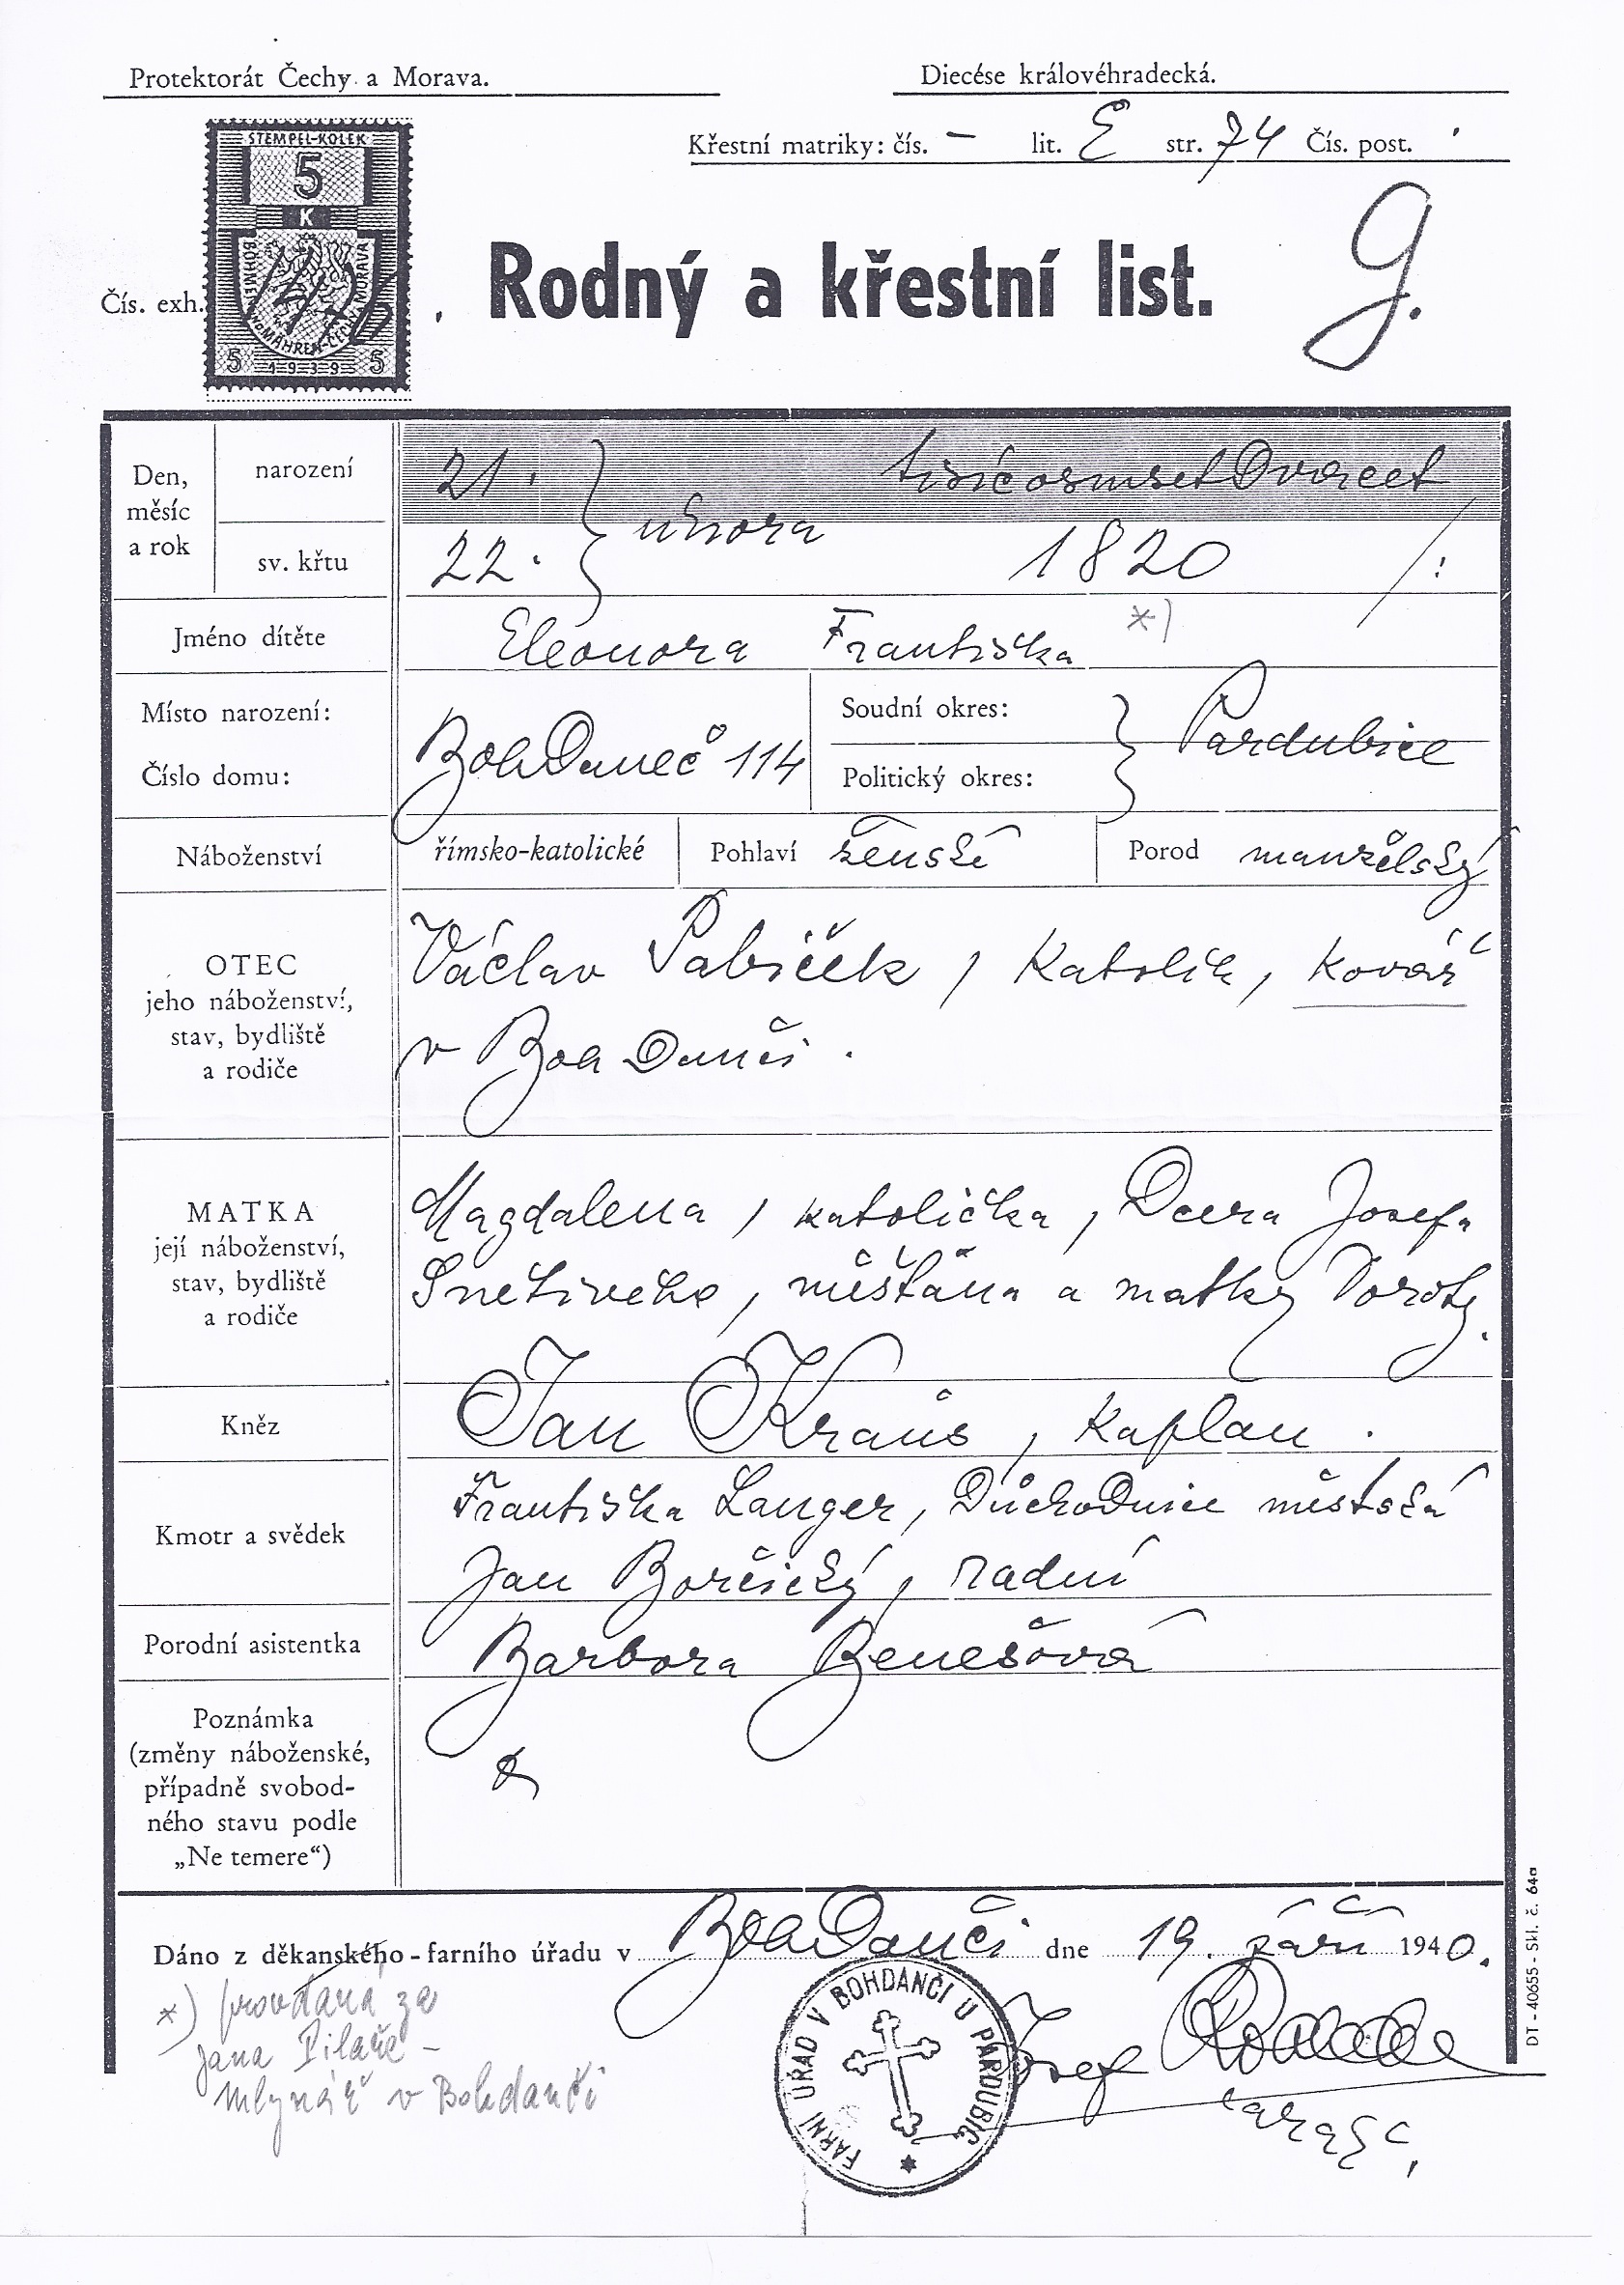 Protektorát Čechy a Morava.
Diecése královéhradecká.
Křestní matriky: čís. – lit. E str. 74 Čís. post.
STEMPEL-KOLEK
5
K
BÖHMEN u. MÄHREN-ČECHY A MORAVA
5 1939 5
Čís. exh.
Rodný a křestní list.
g.
Den, měsíc a rok
narození 21. února tisícosmsetdvacet
sv. křtu 22. 1820
Jméno dítěte Eleonora Františka *)
Místo narození: Bohdaneč
Číslo domu: 114
Soudní okres: Pardubice
Politický okres:
Náboženství římsko-katolické Pohlaví ženské Porod manželský
OTEC
jeho náboženství,
stav, bydliště
a rodiče
Václav Pabiček, katolík, kovář
v Bohdanči.
MATKA
její náboženství,
stav, bydliště
a rodiče
Magdalena, katolička, dcera Josefa
Snětivého, měšťána a matky Doroty.
Kněz Jan Kraus, kaplan.
Kmotr a svědek
Františka Langer, důchodnice městská
Jan Borčický, radní
Porodní asistentka Barbora Benešová
Poznámka
(změny náboženské,
případně svobod-
ného stavu podle
„Ne temere“)
Dáno z děkanského-farního úřadu v Bohdanči dne 19. září 1940.
*) provdaná za
Jana Pilaře –
mlynář v Bohdanči
FARNÍ ÚŘAD V BOHDANČI U PARDUBIC
Josef
farář,
DT - 40655 - Skl. č. 64a